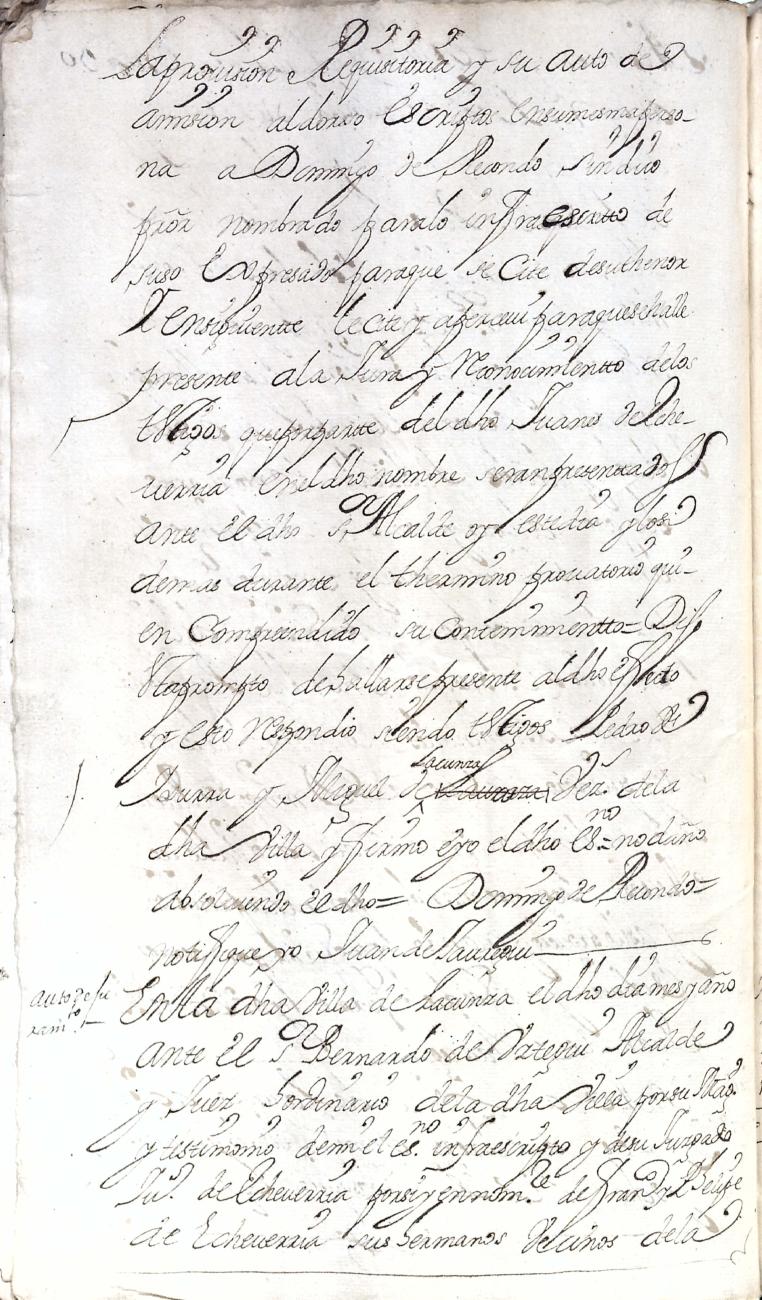 La provision Requisitoria y su auto de
amision al dorso Escriptos en su mesma perso-
na a Domingo de Recondo Sindico
pror nombrado para lo infraescritto de
suso Expresado para que se cite de su thenor
Y Consiguiente le cite y aperceui para que se halle
presente a la Jura y Reconocimientto de los
testigos que por partte del dho Juanes de Eche-
uerria en el dho nombre seran presenttados
Ante el dho sr Alcalde oy este dia y los
demas durante el thermino prouatorio qui-
en Comprendido su Contenimientto= Dijo
esta prompto de hallarse presente al dho effecto
y esto Respondio siendo testigos Pedro de
Yurra y Miguel de Lacunza Vezs. de la
dha Villa y firmo e yo el dho esno= no daño
absoluiendo el dho= Domingo de Recondo=
Notifique yo Juan de Jauregui
auto de ju
ramto.
En la dha Villa de Lacunza el dho dia mes y año
Ante el sr Bernardo de Vztegui Alcalde
y Juez hordinario de la dha Villa por su Magd.
y testimonio de mi el esno. infraescripto y de su Juzgado
Jua. de Echeverria por si y en nomre de Franco y Phelipe
de Echeverria sus hermanos Vecinos de la